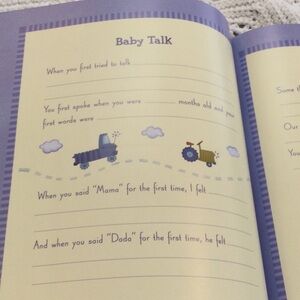 Baby Talk
When you first tried to talk
You first spoke when you were months old and your
first words were
When you said "Mama" for the first time, I felt
And when you said "Dada" for the first time, he felt
Some
Our
You